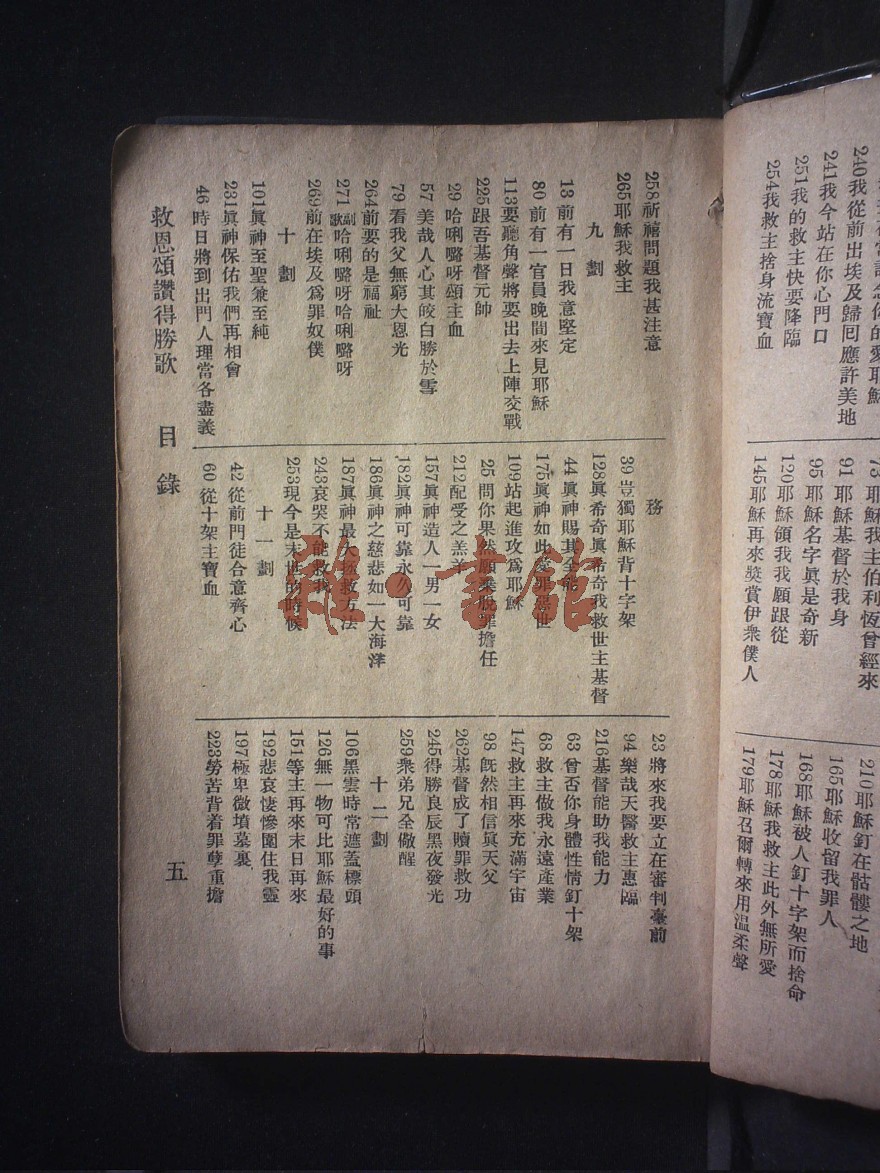 240我從前出埃及歸囘應許美地
241我今站在你心門口
251我的救主快要降臨
254我救主捨身流寶血
73 耶穌我主伯利恆曾經來
91 耶穌基督於我身
95 耶穌名字眞是奇新
120耶穌領我我願跟從
145耶穌再來獎賞伊衆僕人
210耶穌釘在骷髏之地
165耶穌收留我罪人
168耶穌被人釘十字架而捨命
178耶穌我救主此外無所愛
179耶穌召爾轉來用溫柔聲
258祈禱問題我甚注意
265耶穌我救主
九 劃
13 前有一日我意堅定
80 前有一官員晚間來見耶穌
113要聽角聲將要出去上陣交戰
225跟吾基督元帥
29 哈唎嚠呀頌主血
57 美哉人心其皎白勝於雪
79 看我父無窮大恩光
264前要的是福祉
271副歌哈唎嚠呀哈唎嚠呀
269前在埃及爲罪奴僕
十 劃
101眞神至聖兼至純
231眞神保佑我們再相會
46 時日將到出門人理當各盡義
務
39 豈獨耶穌背十字架
128眞希奇眞希奇我救世主基督
44 眞神賜其全能
175眞神如此愛罪惡世
109站起進攻爲耶穌
25 問你果然願棄脫罪擔任
212配受之羔羊
157眞神造人一男一女
182眞神可靠永久可靠
186眞神之慈悲如一大海洋
187眞神最大拯救方法
243哀哭不能救我
253現今是末世的時候
十 一 劃
42 從前門徒合意齊心
60 從十架主寶血
23 將來我要立在審判臺前
94 樂哉天醫救主惠臨
216基督能助我能力
63 曾否你身體性情釘十架
68 救主做我永遠產業
147救主再來充滿宇宙
98 旣然相信眞天父
262基督成了贖罪救功
245得勝良辰黑夜發光
259衆弟兄全儆醒
十 二 劃
106黑雲時常遮蓋標頭
126無一物可比耶穌最好的事
151等主再來末日再來
192悲哀悽慘圍住我靈
197極卑微墳墓裏
223勞苦背着罪孽重擔
救恩頌讚得勝歌 目 錄 五
書館